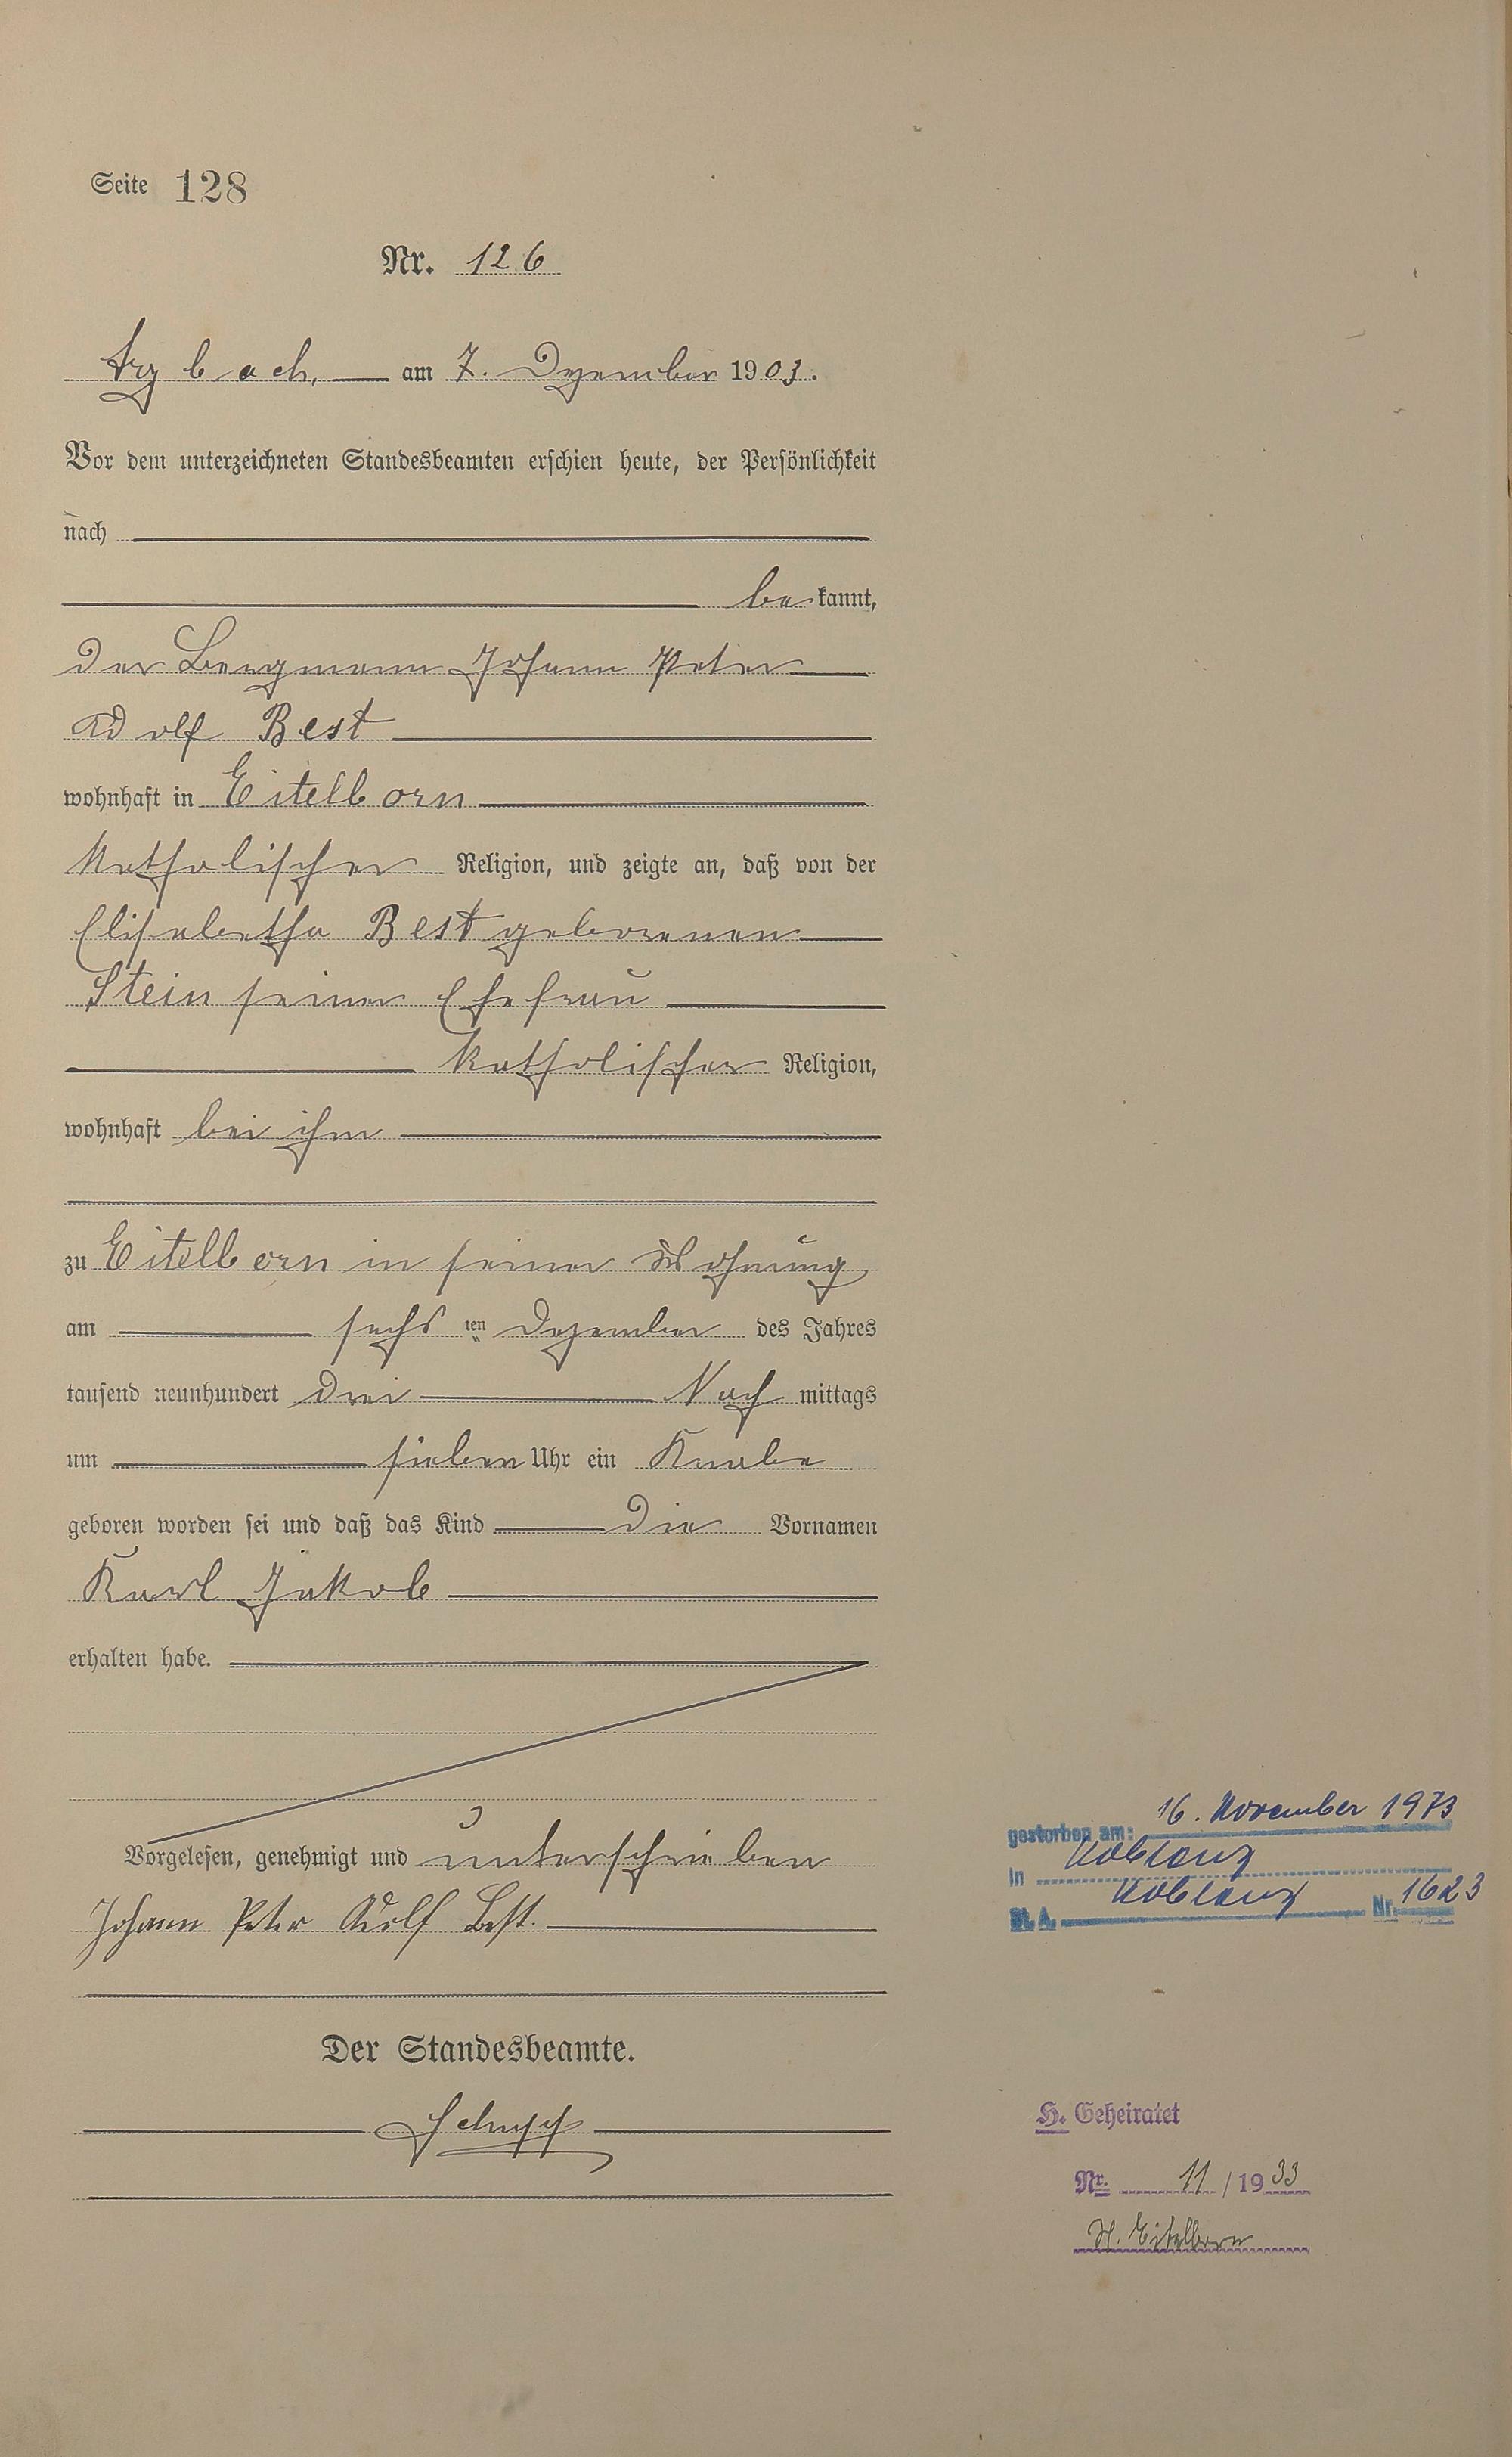 Seite 128
Nr. 126
Arzbach, am 7. Dezember 1903.
Vor dem unterzeichneten Standesbeamten erschien heute, der Persönlichkeit
nach
bekannt,
der Bergmann Johann Peter
Adolf Best
wohnhaft in Eitelborn
katholischer Religion, und zeigte an, daß von der
Elisabetha Best geborenen
Stein seiner Ehefrau
katholischer Religion,
wohnhaft bei ihm
zu Eitelborn in seiner Wohnung
am sechsten Dezember des Jahres
tausend neunhundert drei Nachmittags
um sieben Uhr ein Knabe
geboren worden sei und daß das Kind die Vornamen
Karl Jakob
erhalten habe.
Vorgelesen, genehmigt und unterschrieben
Johann Peter Adolf Best.
Der Standesbeamte.
Schupp
gestorben am: 16. November 1973
in Koblenz
St. A. Koblenz Nr. 1623
H. Geheiratet
Nr. 11/1933
St. Eitelborn